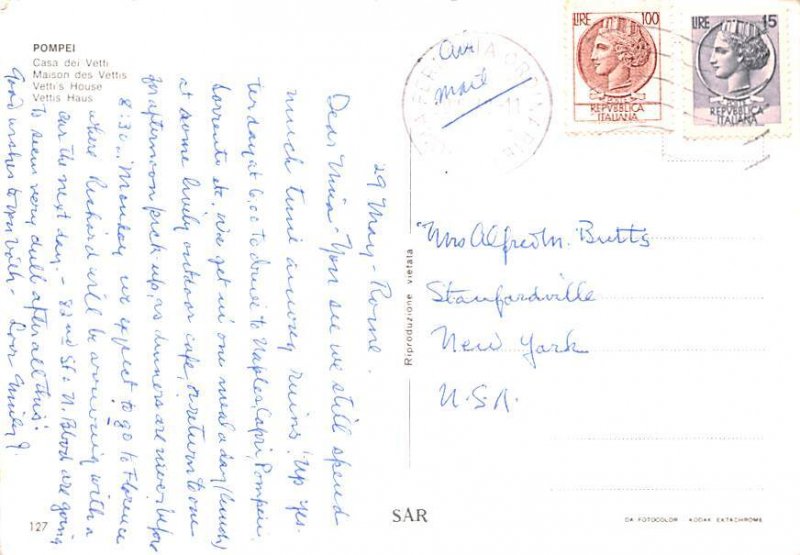 POMPEI
Casa dei Vetti
Maison des Vettis
Vetti's House
Vettis Haus
29 May - Rome.
Dear Nina - You see we still spend
much time among ruins! Up yes-
terday at 6.00 to drive to Naples, Capri, Pompeii,
Sorrento etc. We get in one meal a day (lunch)
at some lively outdoor cafe, & return to one
for afternoon pick up, as dinners are never before
8:30... Monday we expect to go to Florence
where Richard will be arriving with a
car the next day. - 82nd St. & N. Blvd are going
to seem very dull after all this!
Good wishes to you with - Love Emily J.
127
Air
mail
LIRE 100
REPVBBLICA
ITALIANA
LIRE 15
REPVBBLICA
ITALIANA
Mrs Alfred M. Butts
Stanfordville
New York
U.S.A.
Riproduzione vietata
SAR
DA FOTOCOLOR KODAK EKTACHROME